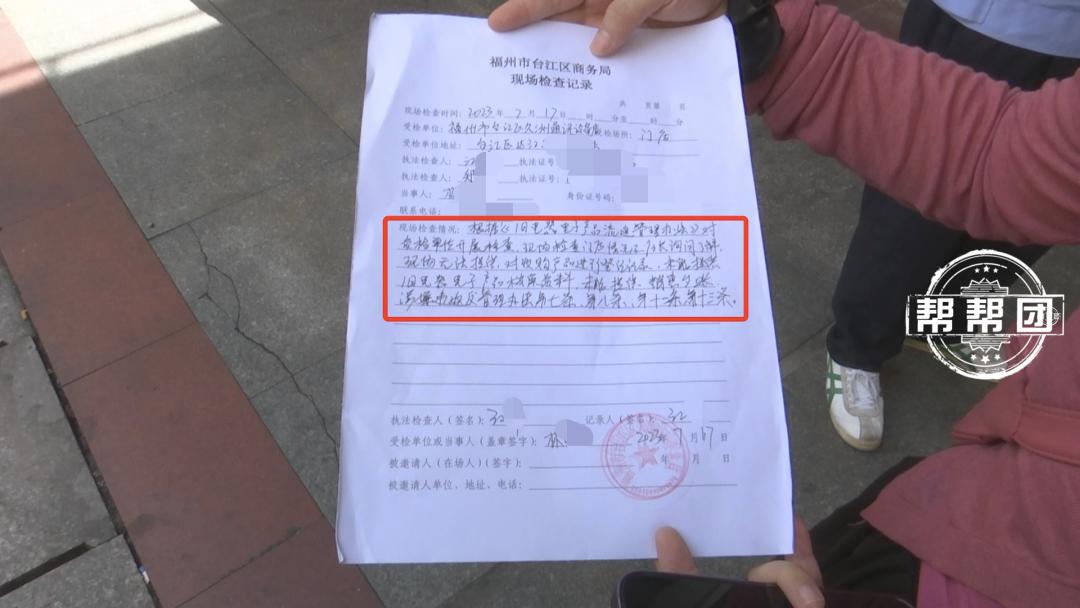 福州市台江区商务局
现场检查记录
共 页第 页
现场检查时间：2023年2月17日 时 分至 时 分
受检单位：福州市台江区久洲通讯设备店 受检场所：门店
受检单位地址：台江区达江
执法检查人：江 执法证号：
执法检查人：郑 执法证号：
当事人： 身份证号码：
联系电话：
现场检查情况：根据《旧电器电子产品流通管理办法》对
受检单位开展检查，现场检查门店情况
现场无法提供，对收购产品进行登记记录，未能提供
旧电器电子产品档案资料，未能提供销售台账
涉嫌违反管理办法第七条、第八条、第十一条、第十三条。
执法检查人（签名）：江 记录人（签名）：江
受检单位或当事人（盖章签字）：林 2023年 月17日
被邀请人（在场人）（签字）： 年 月 日
被邀请人单位、地址、电话：
帮帮团